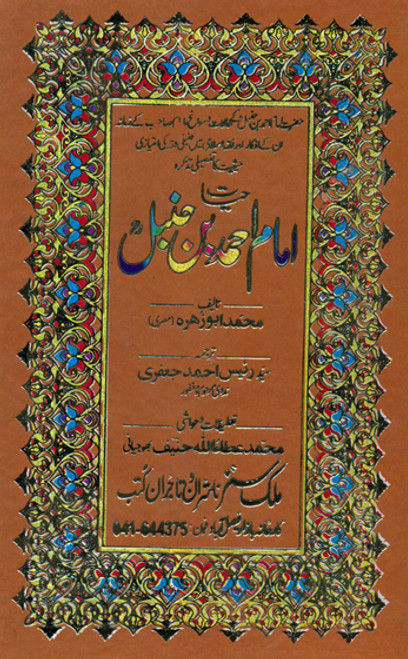 حضرت امام احمد بن حنبل
ان کے افکار اور فقہ اسلامی میں حنبلی فقہ کی امتیازی
حیثیت کا تفصیلی تذکرہ
حیات
امام احمد بن حنبل
تالیف
محمد ابوزھرہ (مصری)
ترجمہ
سید رئیس احمد جعفری
تعلیقات و حواشی
محمد عطاء اللہ حنیف بھوجیانی
ملک سنز ناشران و تاجران کتب
کارخانہ بازار فیصل آباد فون: 041-644375